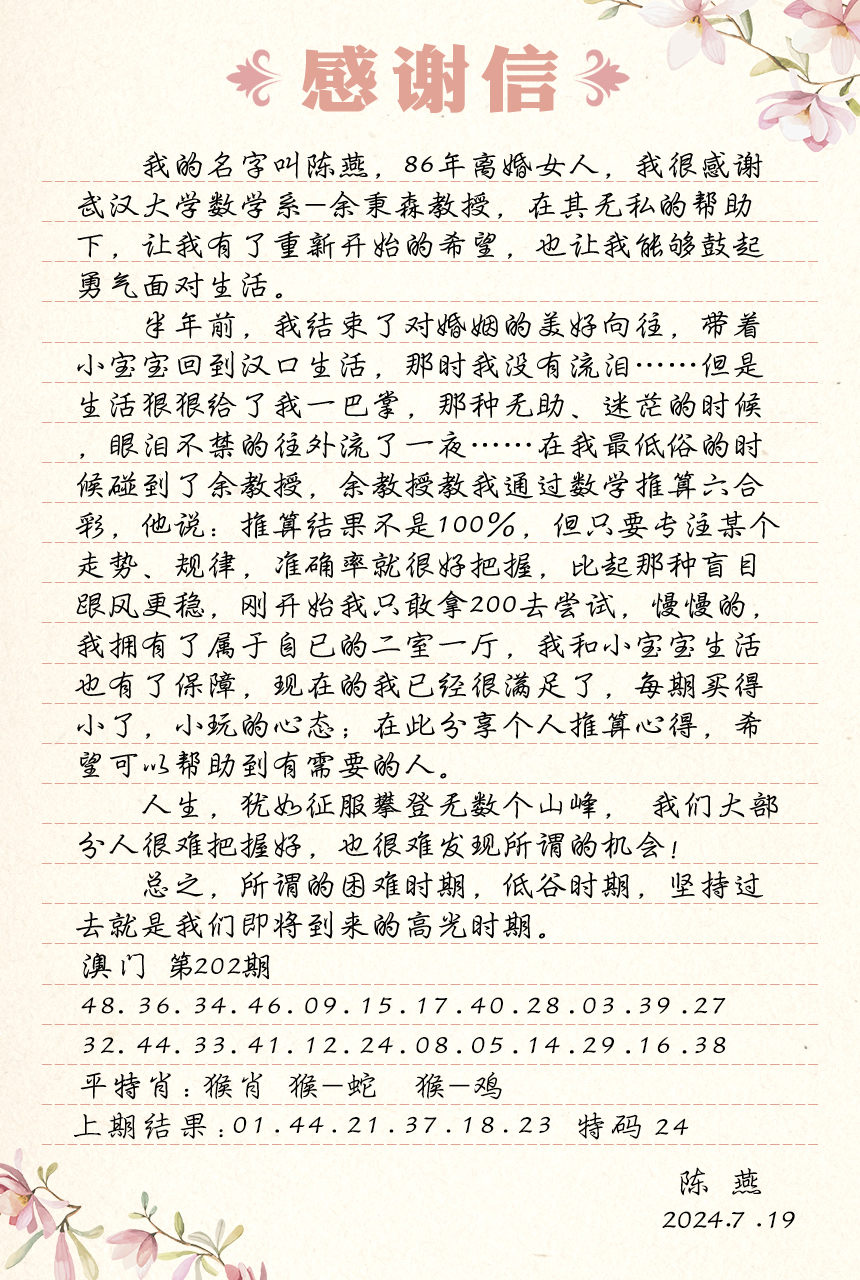 感谢信
我的名字叫陈燕，86年离婚女人，我很感谢
武汉大学数学系—余秉森教授，在其无私的帮助
下，让我有了重新开始的希望，也让我能够鼓起
勇气面对生活。
半年前，我结束了对婚姻的美好向往，带着
小宝宝回到汉口生活，那时我没有流泪……但是
生活狠狠给了我一巴掌，那种无助、迷茫的时候
，眼泪不禁的往外流了一夜……在我最低俗的时
候碰到了余教授，余教授教我通过数学推算六合
彩，他说：推算结果不是100%，但只要专注某个
走势、规律，准确率就很好把握，比起那种盲目
跟风更稳，刚开始我只敢拿200去尝试，慢慢的，
我拥有了属于自已的二室一厅，我和小宝宝生活
也有了保障，现在的我已经很满足了，每期买得
小了，小玩的心态；在此分享个人推算心得，希
望可以帮助到有需要的人。
人生，犹如征服攀登无数个山峰， 我们大部
分人很难把握好，也很难发现所谓的机会！
总之，所谓的困难时期，低谷时期，坚持过
去就是我们即将到来的高光时期。
澳门 第202期
48.36.34.46.09.15.17.40.28.03.39.27
32.44.33.41.12.24.08.05.14.29.16.38
平特肖：猴肖 猴—蛇 猴—鸡
上期结果：01.44.21.37.18.23 特码 24
陈 燕
2024.7.19